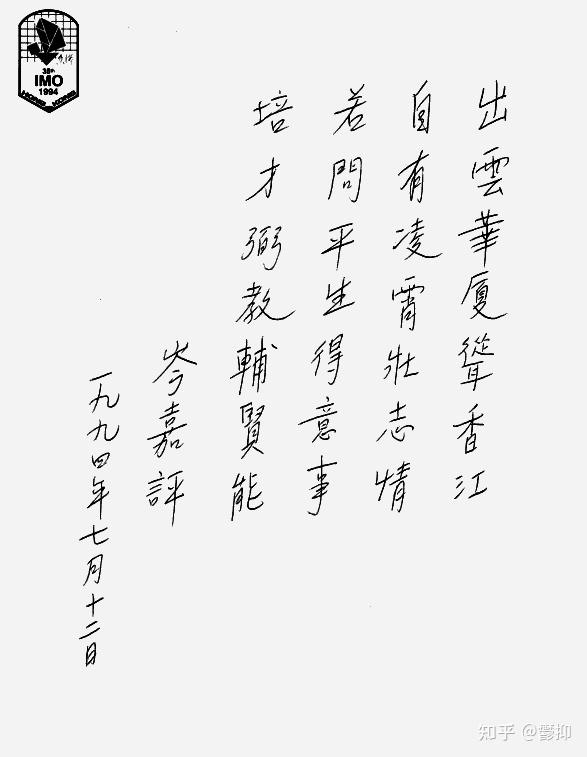 出雲華厦聳香江
自有凌霄壯志情
若問平生得意事
培才弼教輔賢能
岑嘉評
一九九四年七月十二日
35th
IMO
1994
HONG KONG
知乎 @鬱抑